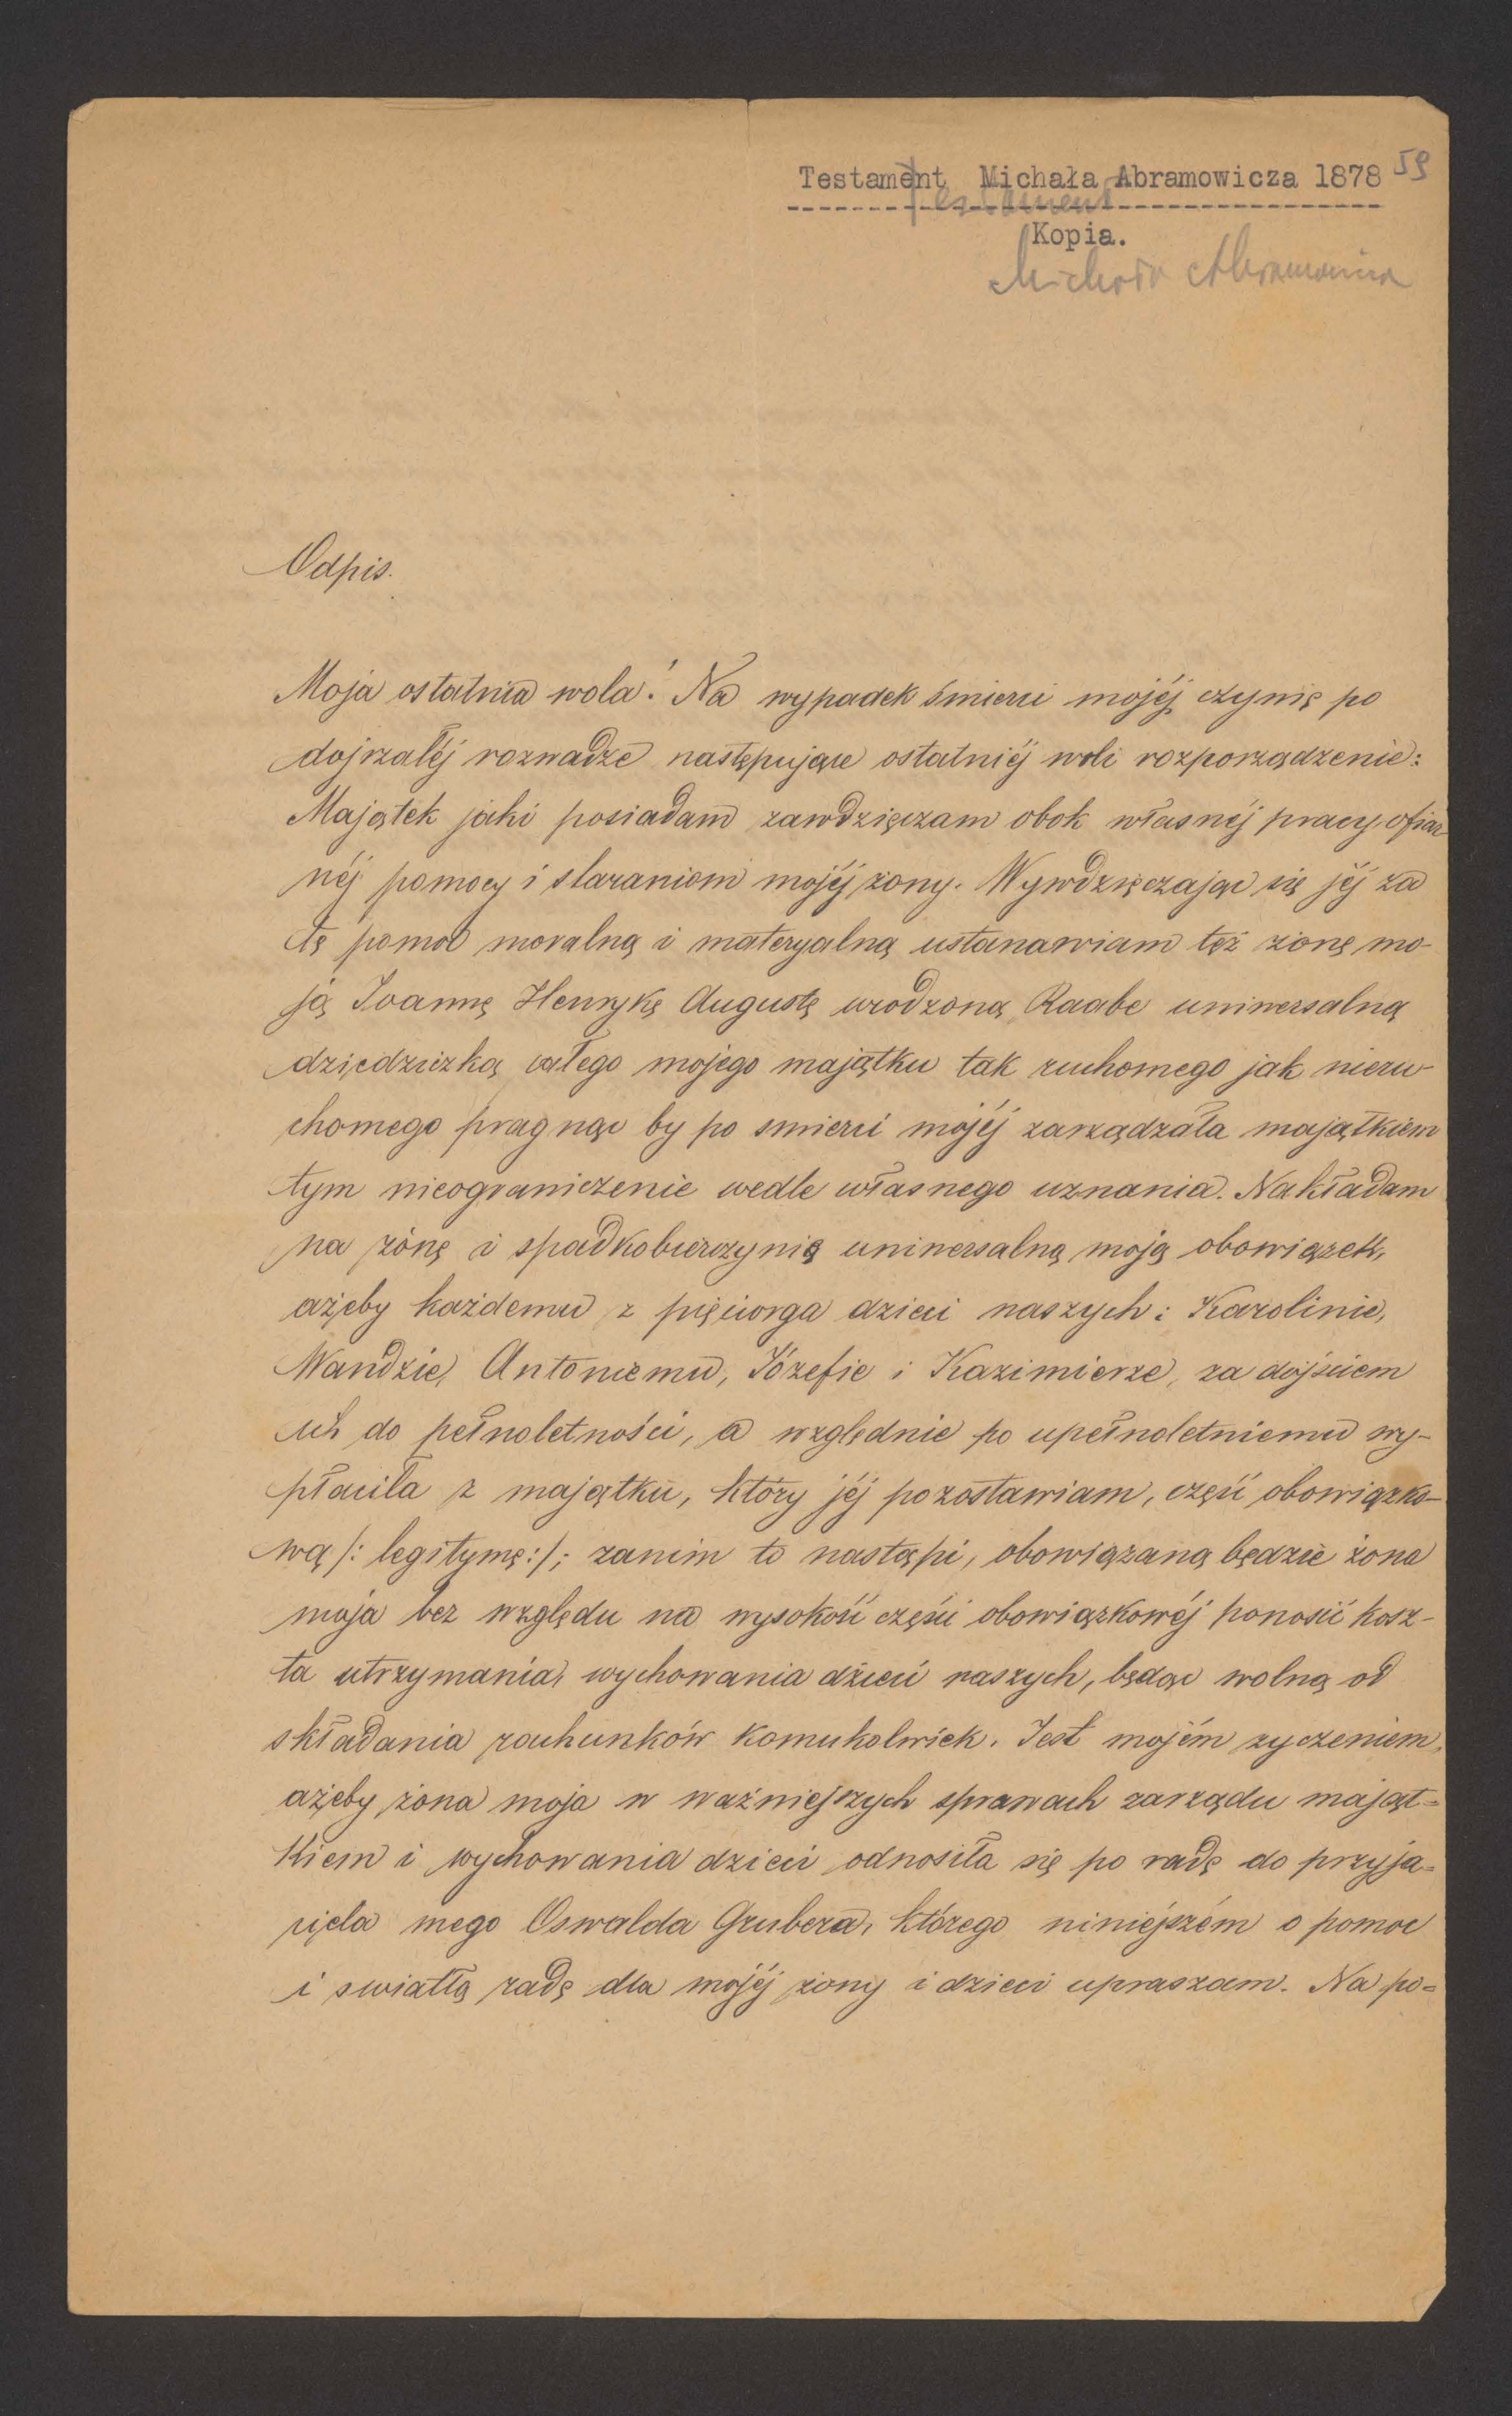 Testament Michała Abramowicza 1878 59
Testament
Kopia.
Michała Abramowicza
Odpis.
Moja ostatnia wola! Na wypadek śmierci mojéj czynię po
dojrzałéj rozwadze następujące ostatniéj woli rozporządzenie:
Majątek jaki posiadam zawdzięczam obok własnéj pracy, ofiar
néj pomocy i staraniom mojéj żony. Wywdzięczając się jéj za
tę pomoc moralną i materyalną ustanawiam też żonę mo-
ją Joannę Henrykę Augustę urodzoną Raabe uniwersalną
dziedziczką całego mojego majątku tak ruchomego jak nieru-
chomego pragnąc by po smierci mojéj zarządzała majątkiem
tym nieograniczenie wedle własnego uznania. Nakładam
na żonę i spadkobierczynię uniwersalną moją obowiązek,
ażeby każdemu z pięciorga dzieci naszych: Karolinie,
Wandzie, Antoniemu, Józefie i Kazimierze, za dojściem
ich do pełnoletności, a względnie po upełnoletnieniu wy-
płaciła z majątku, który jéj pozostawiam, część obowiązko-
wą /: legitymę:/; zanim to nastąpi, obowiązaną będzie żona
moja bez względu na wysokość części obowiązkowéj ponosić kosz-
ta utrzymania, wychowania dzieci naszych, będąc wolną od
składania rachunków komukolwiek. Jest mojém zyczeniem,
ażeby żona moja w ważniejszych sprawach zarządu mająt=
kiem i wychowania dzieci odnosiła się po radę do przyja=
ciela mego Oswalda Grubera, którego niniejszém o pomoc
i swiatłą radę dla mojéj żony i dzieci upraszam. Na po=